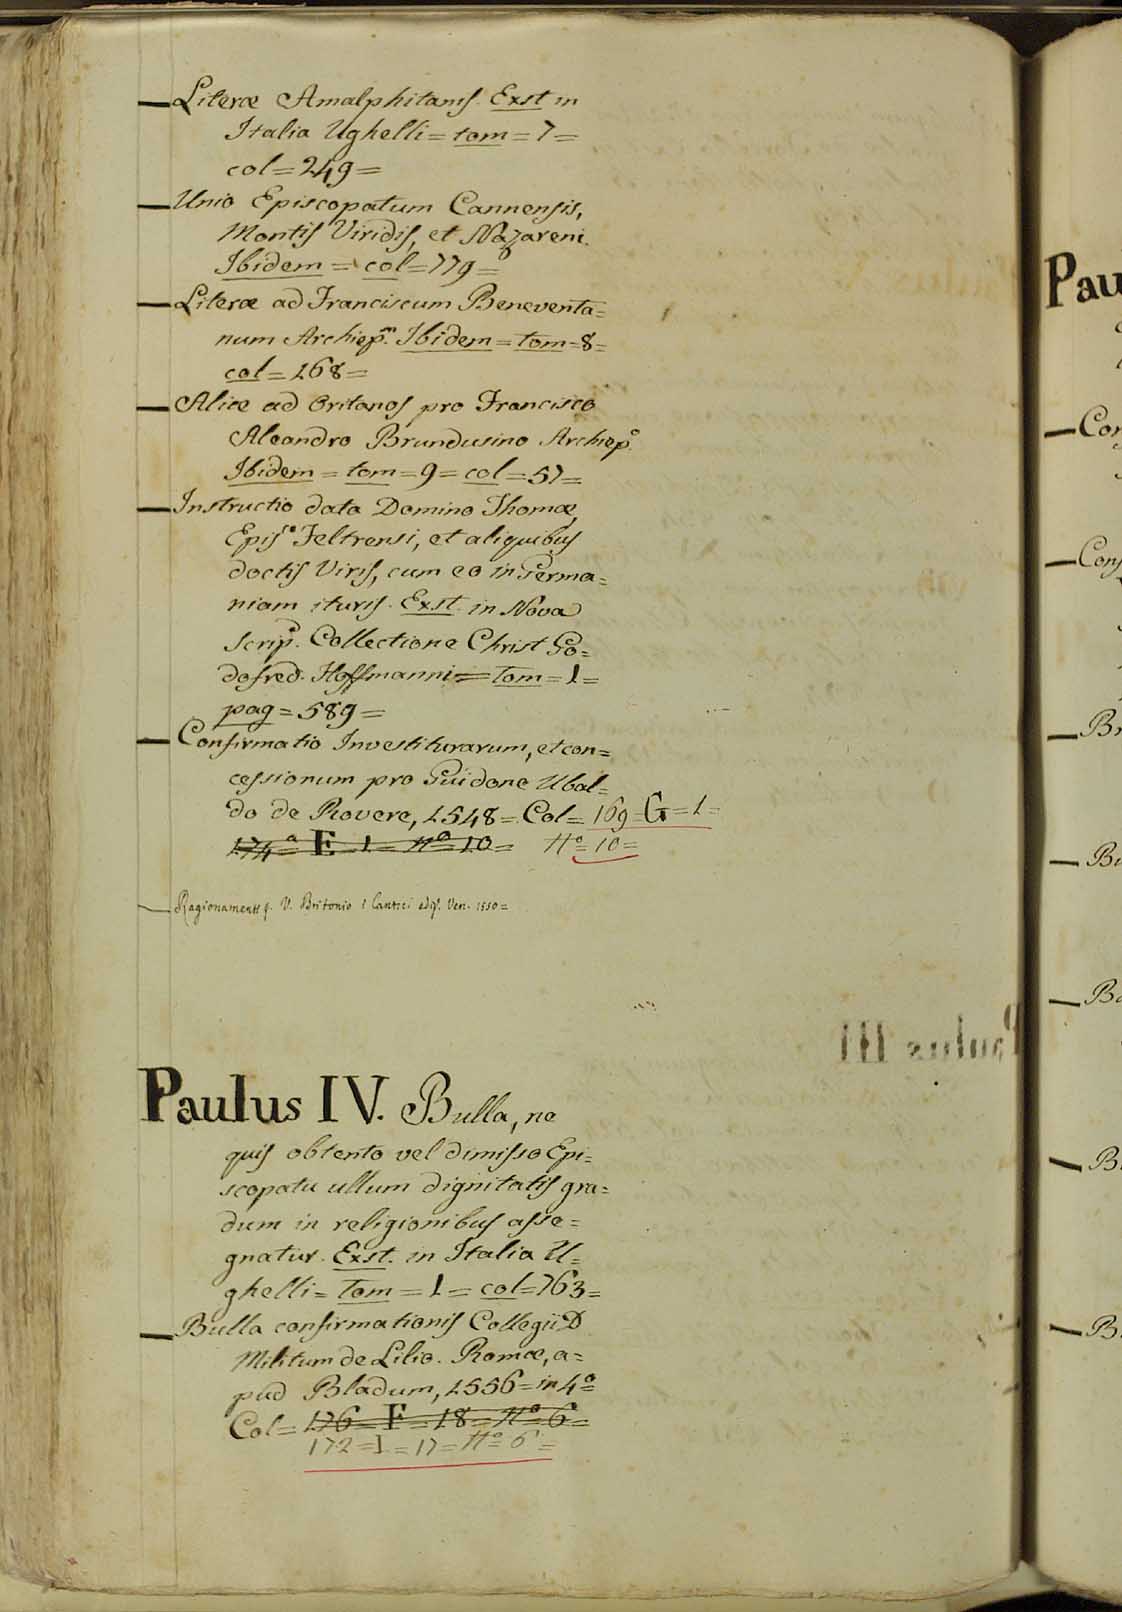 Literæ Amalphitanis. Exst in
Italia Ughelli = tom = 7 =
col = 249 =
Unio Episcopatum Cannensis,
Montis Viridis, et Nazareni.
Ibidem = col = 779 =
Literæ ad Franciscum Beneventa=
num Archiep.m Ibidem = tom = 8 =
col = 168 =
Aliæ ad Oritanos pro Francisco
Aleandro Brundusino Archiep.o
Ibidem = tom = 9 = col = 57 =
Instructio data Domino Thomæ,
Epis.co Feltrensi, et aliquibus
doctis Viris, cum eo in Germa=
niam ituris. Exst. in Nova
Scrip. Collectione Christ Go=
dofred. Hoffmanni = tom = 1 =
pag = 589 =
Confirmatio Investiturarum, et con=
cessionum pro Guidone Ubal=
do de Rovere, 1548 = Col = 169 = G = 1 =
174 = E = 1 = No 10 = No = 10 =
Ragionamenti V. Britonio Cantici Ven. 1550 =
Paulus IV. Bulla, ne
quis obtento vel dimisso Epi=
scopatu ullum dignitatis gra=
dum in religionibus asse=
gnatur. Exst. in Italia U=
ghelli = Tom = 1 = col = 763 =
Bulla confirmationis Collegii D
Militum de Lilio. Romæ, a=
pud Bladum, 1556 = in 4o =
Col = 176 = F = 18 = No 6 =
172 = I = 17 = No = 6 =
Pau
Con
Conf
Br
Bu
Ba
B
B